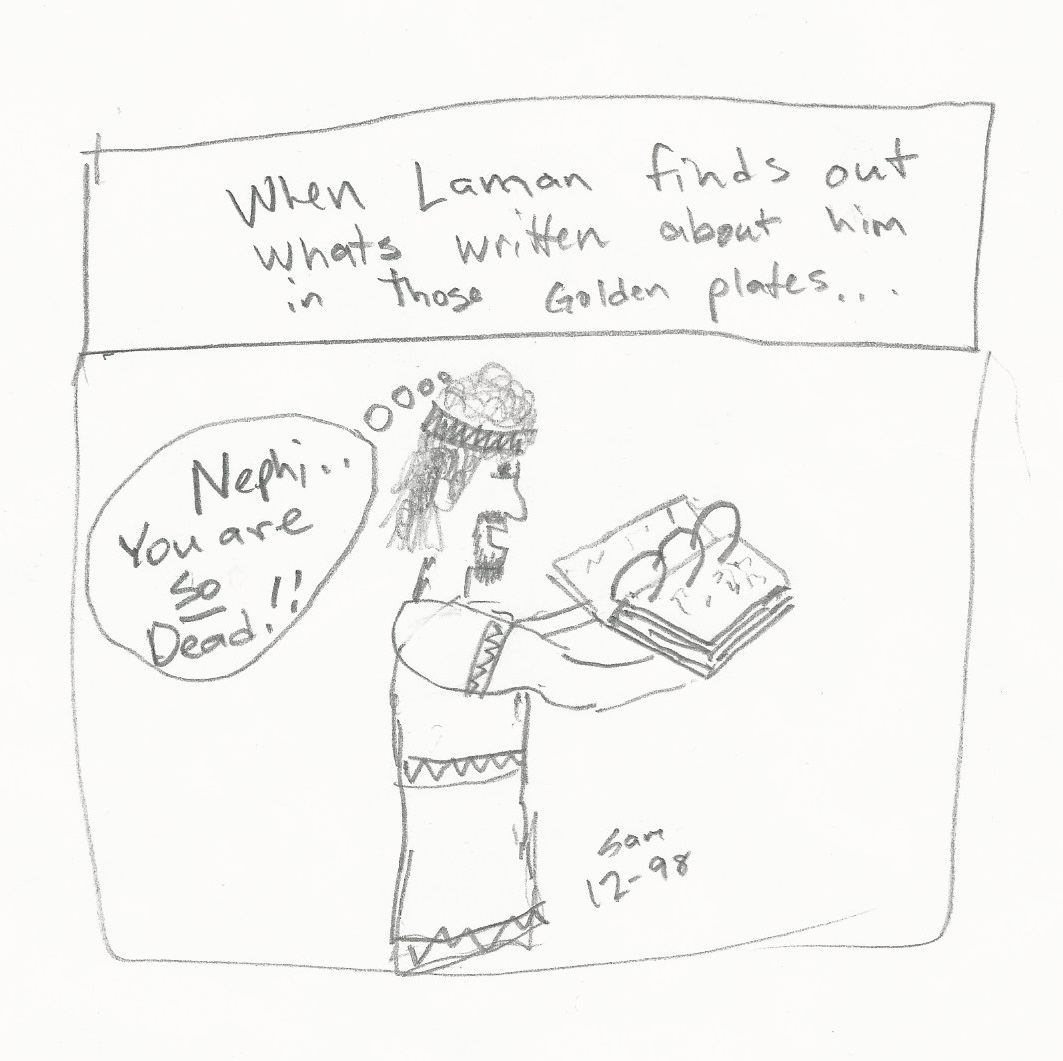 When Laman finds out
whats written about him
in those Golden plates...
Nephi..
You are
So
Dead!!
Sam
12-98